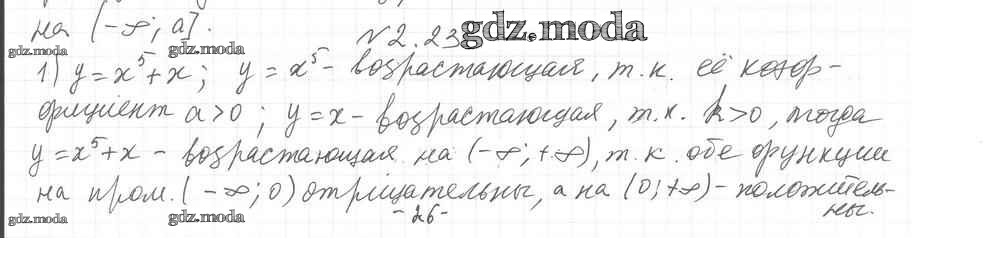 на (-∞; a].
№2.23 gdz.moda
gdz.moda gdz.moda
1) y = x⁵ + x; y = x⁵ - возрастающая, т.к. её коэф-
фициент a > 0; y = x - возрастающая, т.к. k > 0, тогда
y = x⁵ + x - возрастающая на (-∞; +∞), т.к. обе функции
на пром. (-∞; 0) отрицательны, а на (0; +∞) - положитель-
ны.
gdz.moda gdz.moda
- 26 -